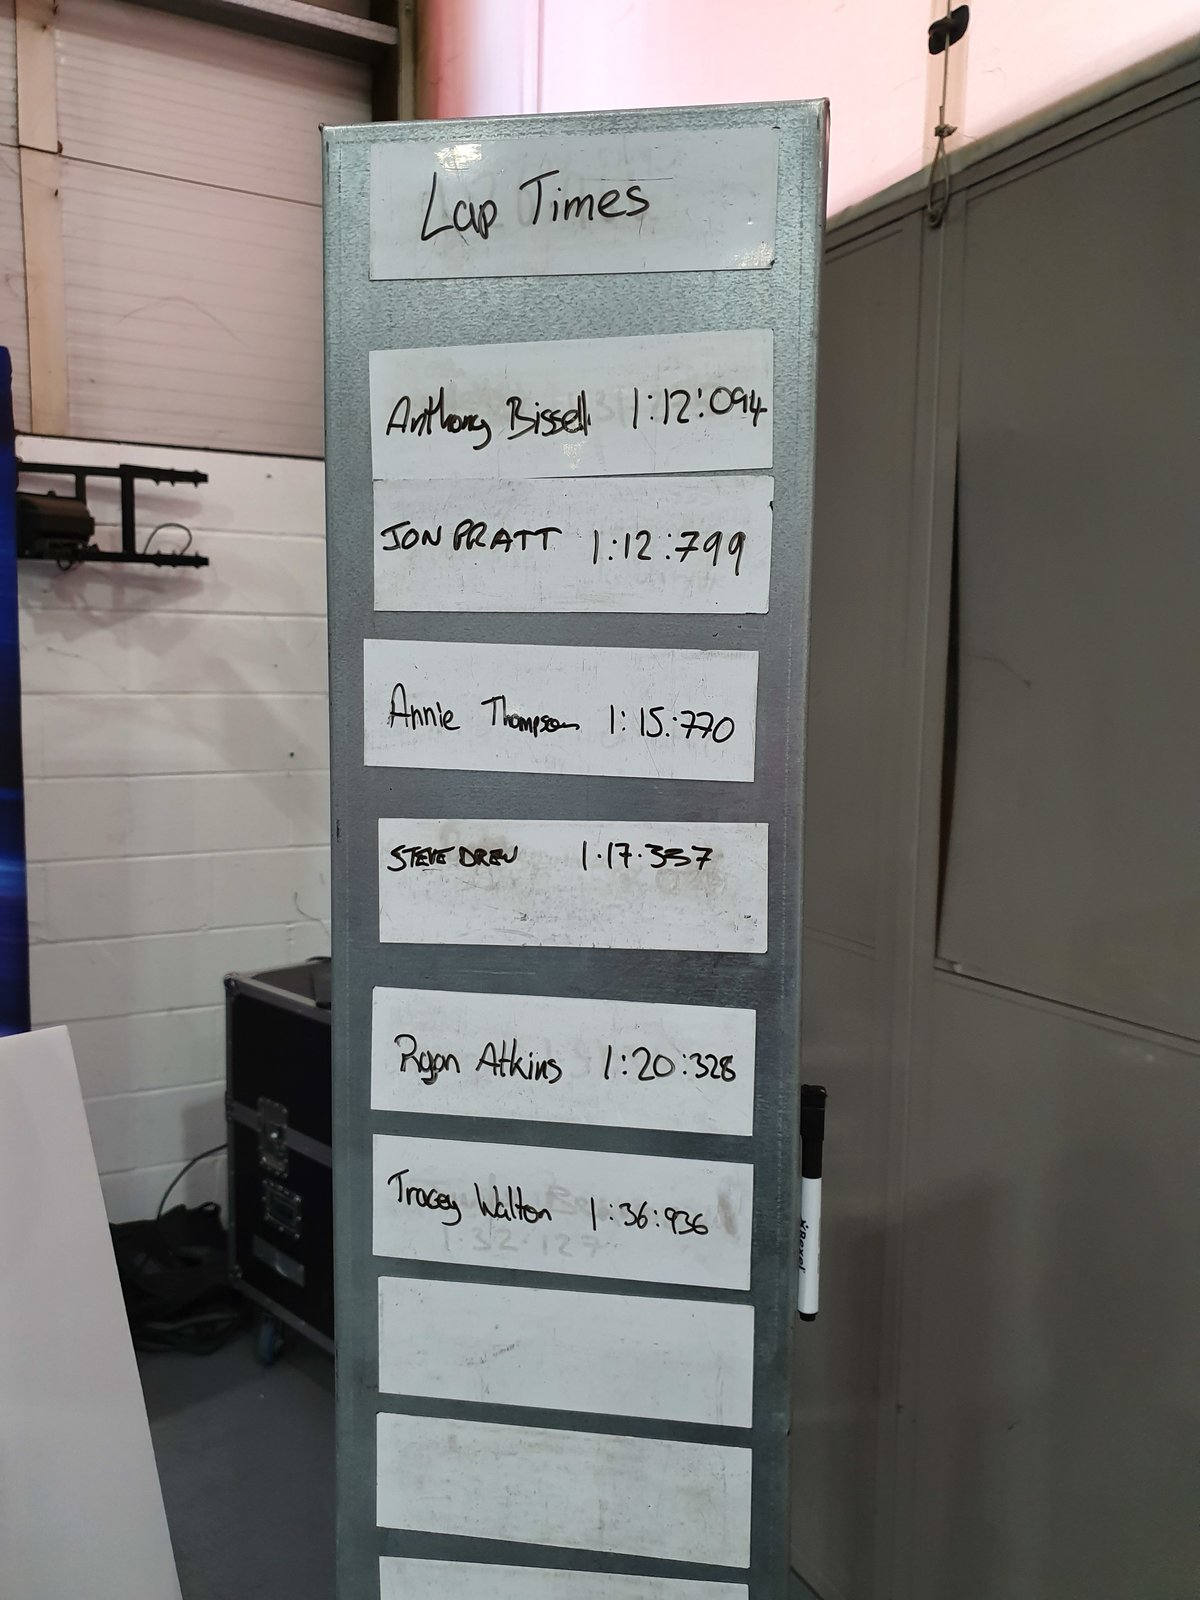 Lap Times
Anthony Bissell 1:12:094
JON PRATT 1:12:799
Annie Thompson 1:15:770
STEVE DREW 1.17.337
Ryan Atkins 1:20:328
Tracey Walton 1:36:936
1:32:127
Rexel